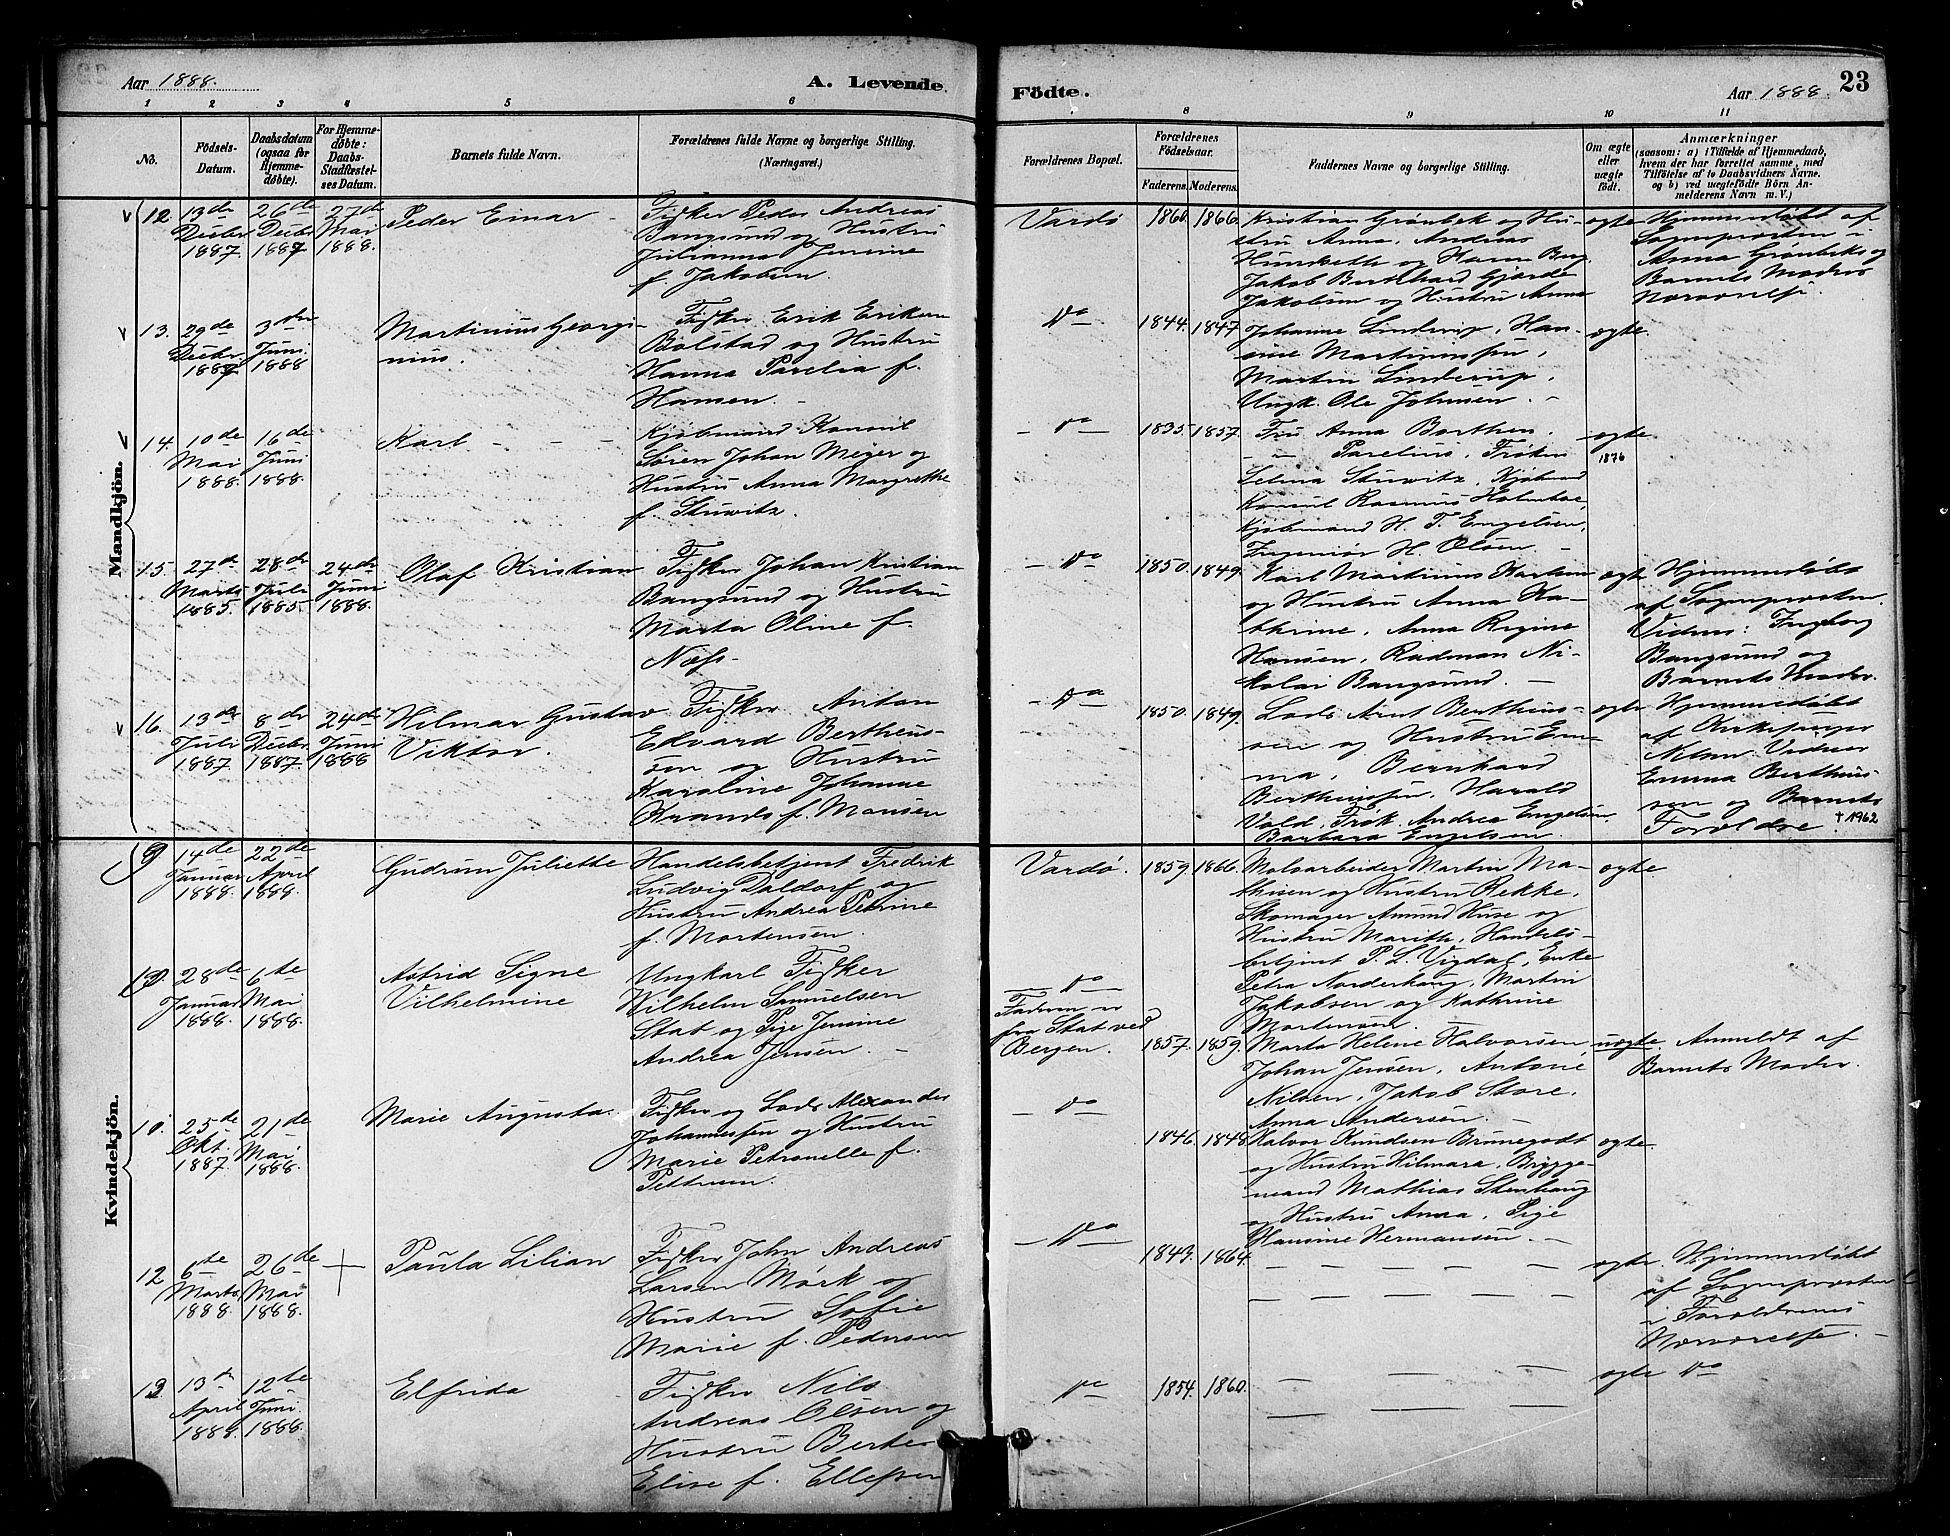 Aar 1888.
A. Levende
1 2 3 4 5 6
No.
Födsels-
Datum.
Daabsdatum
(ogsaa for
Hjemme-
døbte).
For Hjemme-
døbte:
Daabs-
Stadfæstel-
ses Datum.
Barnets fulde Navn.
Forældrenes fulde Navne og borgerlige Stilling.
(Næringsvei.)
Mandkjön.
12. 13de Decbr 1887. 26de Decbr 1887 27de Mai 1888.
Peder Einar
Fisker Peder Andreas
Bangsund og Hustru
Julianna Jensine
f. Jakobsen.
13. 29de Decbr. 1887 3die Juni 1888
Martinius Georgi-
nius.
Fisker Erik Eriksen
Bolstad og Hustru
Hanna Parelia f.
Hansen.
14. 10de Mai 1888. 16de Juni 1888.
Karl
Kjøbmand Konsul
Søren Johan Meyer og
Hustru Anna Margrethe
f. Stuwitz.
15. 27de Marts 1885. 28de Juli 1885. 24de Juni 1888.
Olaf Kristian
Fisker Johan Kristian
Bangsund og Hustru
Marta Oline f.
Næss
16. 13de Juli 1887 8de Decbr 1887. 24de Juni 1888
Hilmar Gustav
Viktor.
Fisker Anton
Edvard Bertheus-
sen og Hustru
Karoline Johanne
Krands f. Monsen
Kvindekjön.
9 14de Januar 1888. 22de April 1888.
Gudrun Juliette
Handelsbetjent Fredrik
Ludvig Daldorf og
Hustru Andrea Petrine
f. Mortensen.
28de Januar 1888. 6te Mai 1888.
Astrid Signe
Vilhelmine
Ungkarl Fisker
Wilhelm Samuelsen
Stat og Pige Jensine
Andrea Jensen.
10. 25de Okt. 1887. 21de Mai 1888.
Marie Augusta.
Fisker og Lods Alexander
Johannessen og Hustru
Marie Petronelle f.
Pettersen.
12 6te Marts 1888. 26de Mai 1888.
Paula Lilian
Fisker John Andreas
Larsen Mörk og
Hustru Sofie
Marie f. Pedersen
13de April 1888. 12te Juni 1888.
Elfrida
Fisker Nils
Andreas Olsen og
Hustru Berte
Elise f. Ellefsen
Födte.
Aar 1888. 23
8 9 10 11
Forældrenes Bopæl.
Forældrenes
Födselsaar.
Faderens. Moderens.
Faddernes Navne og borgerlige Stilling.
Om ægte
eller
uægte
født.
Anmærkninger
(saasom: a) i Tilfælde af Hjemmedaab,
hvem der har forrettet samme, med
Tilføielse af to Daabsvidners Navne.
og b) ved uægtefödte Börn An-
melderens Navn m. V.)
Vardø 1860. 1866.
Kristian Grönbek og Hu-
stru Anna, Andreas
Jakob Bernhard Gjærde
Jakobsen og Hustru Anna
ægte
Hjemmedøbt af
Sognepræsten i
Anna Grönbeks og
Barnets Moders
Nærværelse.
Do 1844. 1847
Johanne Linderup, Han-
sine Martinussen,
Martin Linderup,
Ungk. Ole Johnsen.
ægte.
Do 1835. 1857.
Fru Anna Barthen.
Parelius, Frøken
Selma Stuwitz, Kjøbmd
Konsul Rasmus Holmboe,
Kjøbmand H. T. Engelsen,
Ingeniør H. Olsen.
ægte
1876
Do 1850. 1849.
Karl Martinus Karlsen
og Hustru Anna Ka-
thrine, Anna Regine
Hansen, Rasmus Ni-
kolai Bangsund.
ægte
Hjemmedøbt
af Sognepræsten.
Vidner: Ingeborg
Bangsund og
Barnets Moder.
Do 1850. 1849.
Lods Arnt Bertheus-
sen og Hustru Em-
ma, Bernhard
Bertheussen, Harald
Vold, Frøk. Andrea Engelsen,
Barbara Engelsen.
ægte
Hjemmedøbt
af Kirkesanger
Nilsen. Vidner
Emma Bertheus-
sen og Barnets
Forældre. † 1962
Vardø. 1859. 1866.
Malvarbeider Martin Ma-
thisen og Hustru Rekke,
Skomager Amund Huse og
Hustru Marith, Handels-
betjent P. L. Vigdal, Enke
Petra Norderhaug, Martin
Jakobsen og Kathrine
Mortensen.
ægte
Do
Faderen er
fra Stat ved
Bergen.
1857. 1859.
Marta Helene Halvorsen,
Johan Jensen, Antone
Nilsen, Jakob Store,
Anna Andersen.
uægte.
Anmeldt af
Barnets Moder.
Do 1846. 1848
Halvor Knudsen Brunegodt
og Hustru Hilmara, Brygge-
mand Mathias Stenhaug
og Hustru Anna, Pige
Hansine Hermansen.
ægte.
Do 1843. 1864.
ægte.
Hjemmedøbt
af Sognepræsten
i Forældrenes
Nærværelse.
Do 1854. 1860.
ægte Do